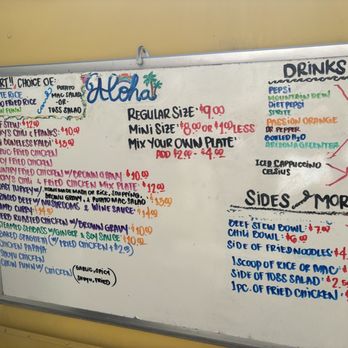 CHOICE OF:
RICE
FRIED RICE
FUN
POTATO
MAC SALAD
-OR-
TOSS SALAD
Aloha
REGULAR SIZE $9.00
MINI SIZE $8.00 OR $1.00 LESS
MIX YOUR OWN PLATE
ADD $2.00 - $4.00
STEW $12.00
CHILI & FRANKS $10.00
BONELESS KALBI $13.00
FRIED CHICKEN
FRIED CHICKEN
FRIED CHICKEN W/ BROWN GRAVY $10.00
CHILI & FRIED CHICKEN MIX PLATE $12.00
TURKEY W/ RICE, STUFFING
BROWN GRAVY, & POTATO MAC SALAD
BEEF W/ MUSHROOMS & WINE SAUCE
CURRY $14.00
ROASTED CHICKEN W/ BROWN GRAVY
STEAMED SEABASS W/ GINGER & SOY SAUCE $10.00
BAKED SPAGHETTI (W/ FRIED CHICKEN + $2.00)
CHICKEN PAPAYA
SHOYU CHICKEN
CHOW FUNN W/ CHICKEN (GARLIC, SPICY
SHOYU, FRIED)
DRINKS
PEPSI
MOUNTAIN DEW
DIET PEPSI
SPRITE
PASSION ORANGE
DR. PEPPER
BOTTLED H2O
ARIZONA GREEN TEA
ICED CAPPUCCINO
CELSIUS
SIDES AND MOR
BEEF STEW BOWL $7.00
CHILI BOWL $6.00
SIDE OF FRIED NOODLES $4.
1 SCOOP OF RICE OR MAC
SIDE OF TOSS SALAD $2.5
1 PC. OF FRIED CHICKEN